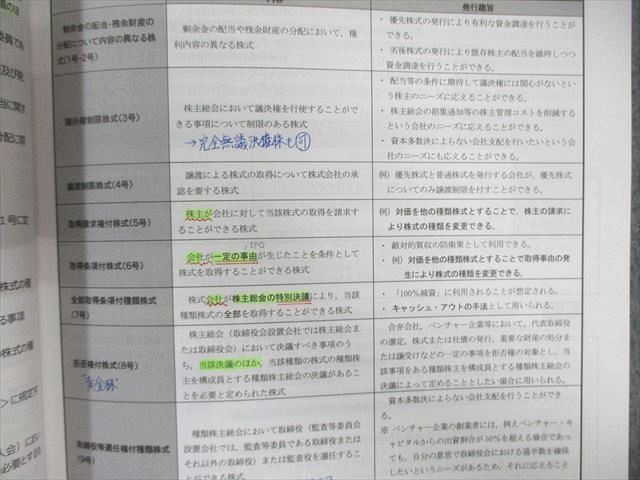 発行趣旨
剰余金の配当・残余財産の
分配について内容の異なる株
式(1号・2号)
剰余金の配当や残余財産の分配において、権
利内容の異なる株式
・ 優先株式の発行により有利な資金調達を行うことが
できる。
・ 劣後株式の発行により既存株主の配当を維持しつつ
資金調達を行うことができる。
議決権制限株式(3号)
株主総会において議決権を行使することがで
きる事項について制限のある株式
→完全無議決権株も可
・ 配当等の条件に期待して議決権には関心がないとい
う株主のニーズに応えることができる。
・ 株主総会の招集通知等の株主管理コストを削減する
という会社のニーズに応えることができる。
・ 資本多数決によらない会社支配を行いたいという会
社のニーズにも応えることができる。
譲渡制限株式(4号)
譲渡による株式の取得について株式会社の承
認を要する株式
例) 優先株式と普通株式を発行する会社が、優先株式
についてのみ譲渡制限を付すことができる。
取得請求権付株式(5号)
株主が会社に対して当該株式の取得を請求す
ることができる株式
例) 対価を他の種類株式とすることで、株主の請求によ
り株式の種類を変更できる。
取得条項付株式(6号)
IPO
会社が一定の事由が生じたことを条件として
株式を取得することができる株式
・ 敵対的買収の防衛策として利用できる。
・ 例) 対価を他の種類株式とすることで取得事由の発
生により株式の種類を変更できる。
全部取得条項付種類株式
(7号)
株式会社が株主総会の特別決議により、当該
種類株式の全部を取得することができる株式
・ 「100%減資」に利用されることが想定される。
・ キャッシュ・アウトの手法として用いられる。
拒否権付株式(8号)
"黄金株"
株主総会(取締役会設置会社では株主総会ま
たは取締役会)において決議すべき事項のう
ち、当該決議のほか、当該種類の株式の種類株
主を構成員とする種類株主総会の決議があるこ
とを必要と定められた株式
合弁会社、ベンチャー企業等において、代表取締役
の選定、株式または社債の発行、重要な財産の処分ま
たは譲受けなどの一定の事項を拒否権の対象とし、当
該事項をある種類株主を構成員とする種類株主総会の
決議によって定めることとしたい場合に用いられる。
取締役等選任権付種類株式
(9号)
種類株主総会において取締役(監査等委員会
設置会社では、監査等委員である取締役または
それ以外の取締役)または監査役を選任するこ
資本多数決によらない会社支配を行うことができ
る。
※ ベンチャー企業の創業者には、例えベンチャー・キ
ャピタルからの出資割合が50%を超える場合であっ
ても、自分の意思で取締役会における過半数を確保
したいというニーズがあるため、それに応えること